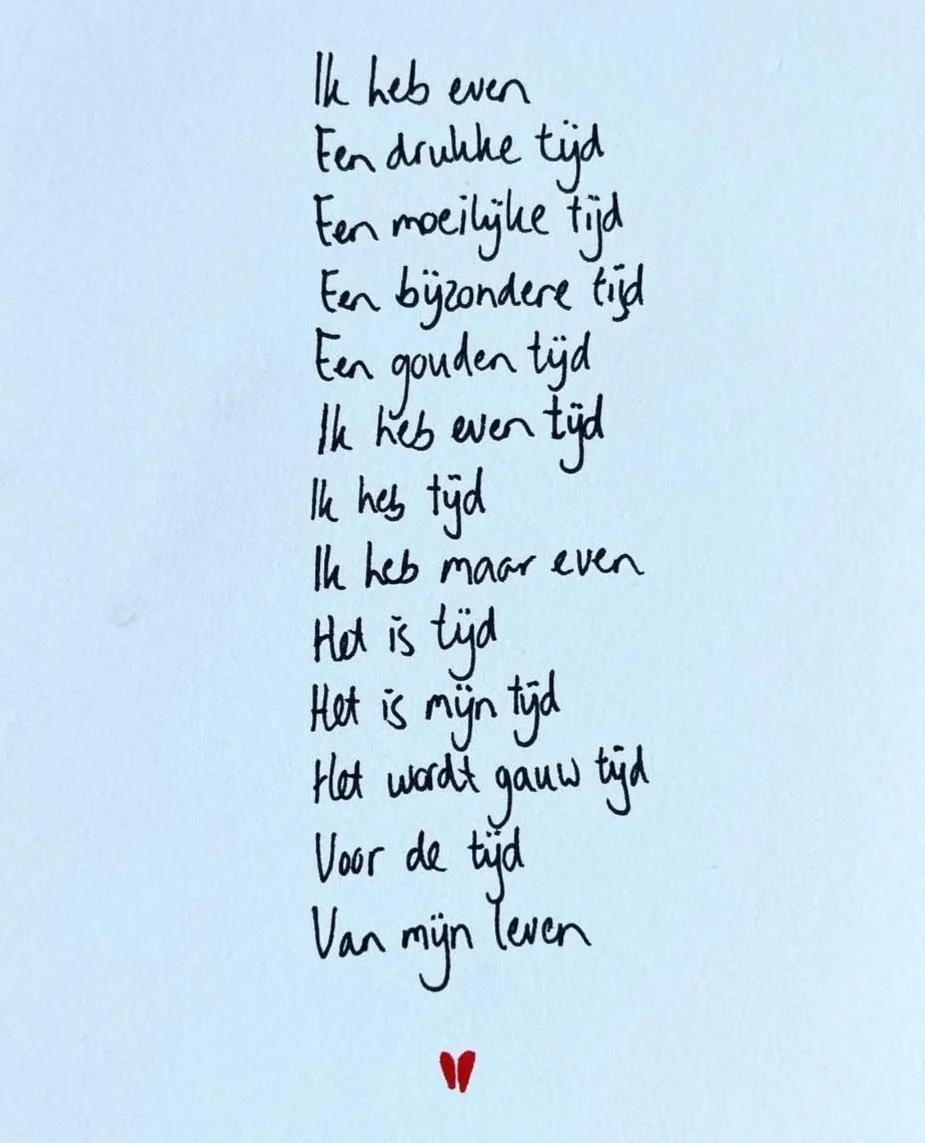 Ik heb even
Een drukke tijd
Een moeilijke tijd
Een bijzondere tijd
Een gouden tijd
Ik heb even tijd
Ik heb tijd
Ik heb maar even
Het is tijd
Het is mijn tijd
Het wordt gauw tijd
Voor de tijd
Van mijn leven